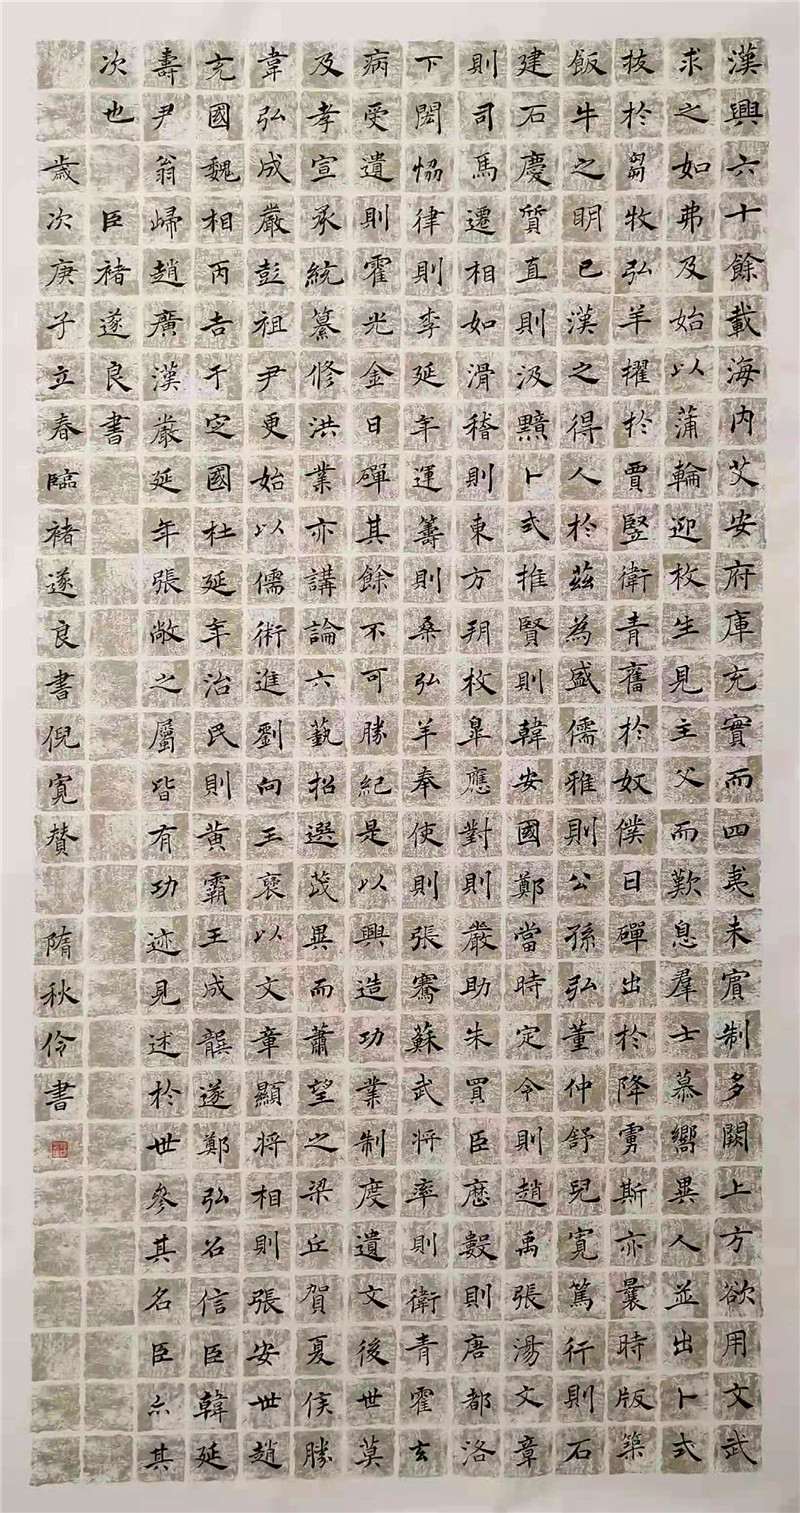 漢興六十餘載海内艾安府庫充實而四夷未賓制多闕上方欲用文武
求之如弗及始以蒲輪迎枚生見主父而歎息羣士慕嚮異人並出卜式
拔於芻牧弘羊擢於賈豎衛青奮於奴僕日磾出於降虜斯亦曩時版築
飯牛之明已漢之得人於兹為盛儒雅則公孫弘董仲舒兒寬篤行則石
建石慶質直則汲黯卜式推賢則韓安國鄭當時定令則趙禹張湯文章
則司馬遷相如滑稽則東方朔枚皐應對則嚴助朱買臣歷數則唐都洛
下閎恊律則李延年運籌則桑弘羊奉使則張騫蘇武將率則衛青霍去
病受遺則霍光金日磾其餘不可勝紀是以興造功業制度遺文後世莫
及孝宣承統纂修洪業亦講論六藝招選茂異而蕭望之梁丘賀夏侯勝
韋弘成嚴彭祖尹更始以儒術進劉向王襃以文章顯將相則張安世趙
充國魏相丙吉于定國杜延年治民則黄霸王成龔遂鄭弘召信臣韓延
壽尹翁歸趙廣漢嚴延年張敞之屬皆有功迹見述於世參其名臣亦其
次也 臣褚遂良書
歲次庚子立春臨褚遂良書倪寬贊 隋秋伶書